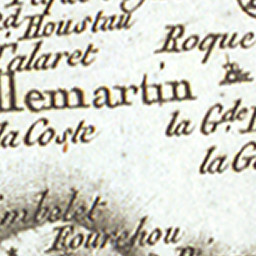 Houstau
Calaret
Roque
lemartin
la Coste
la G.de
la G
mbelet
Fourchou